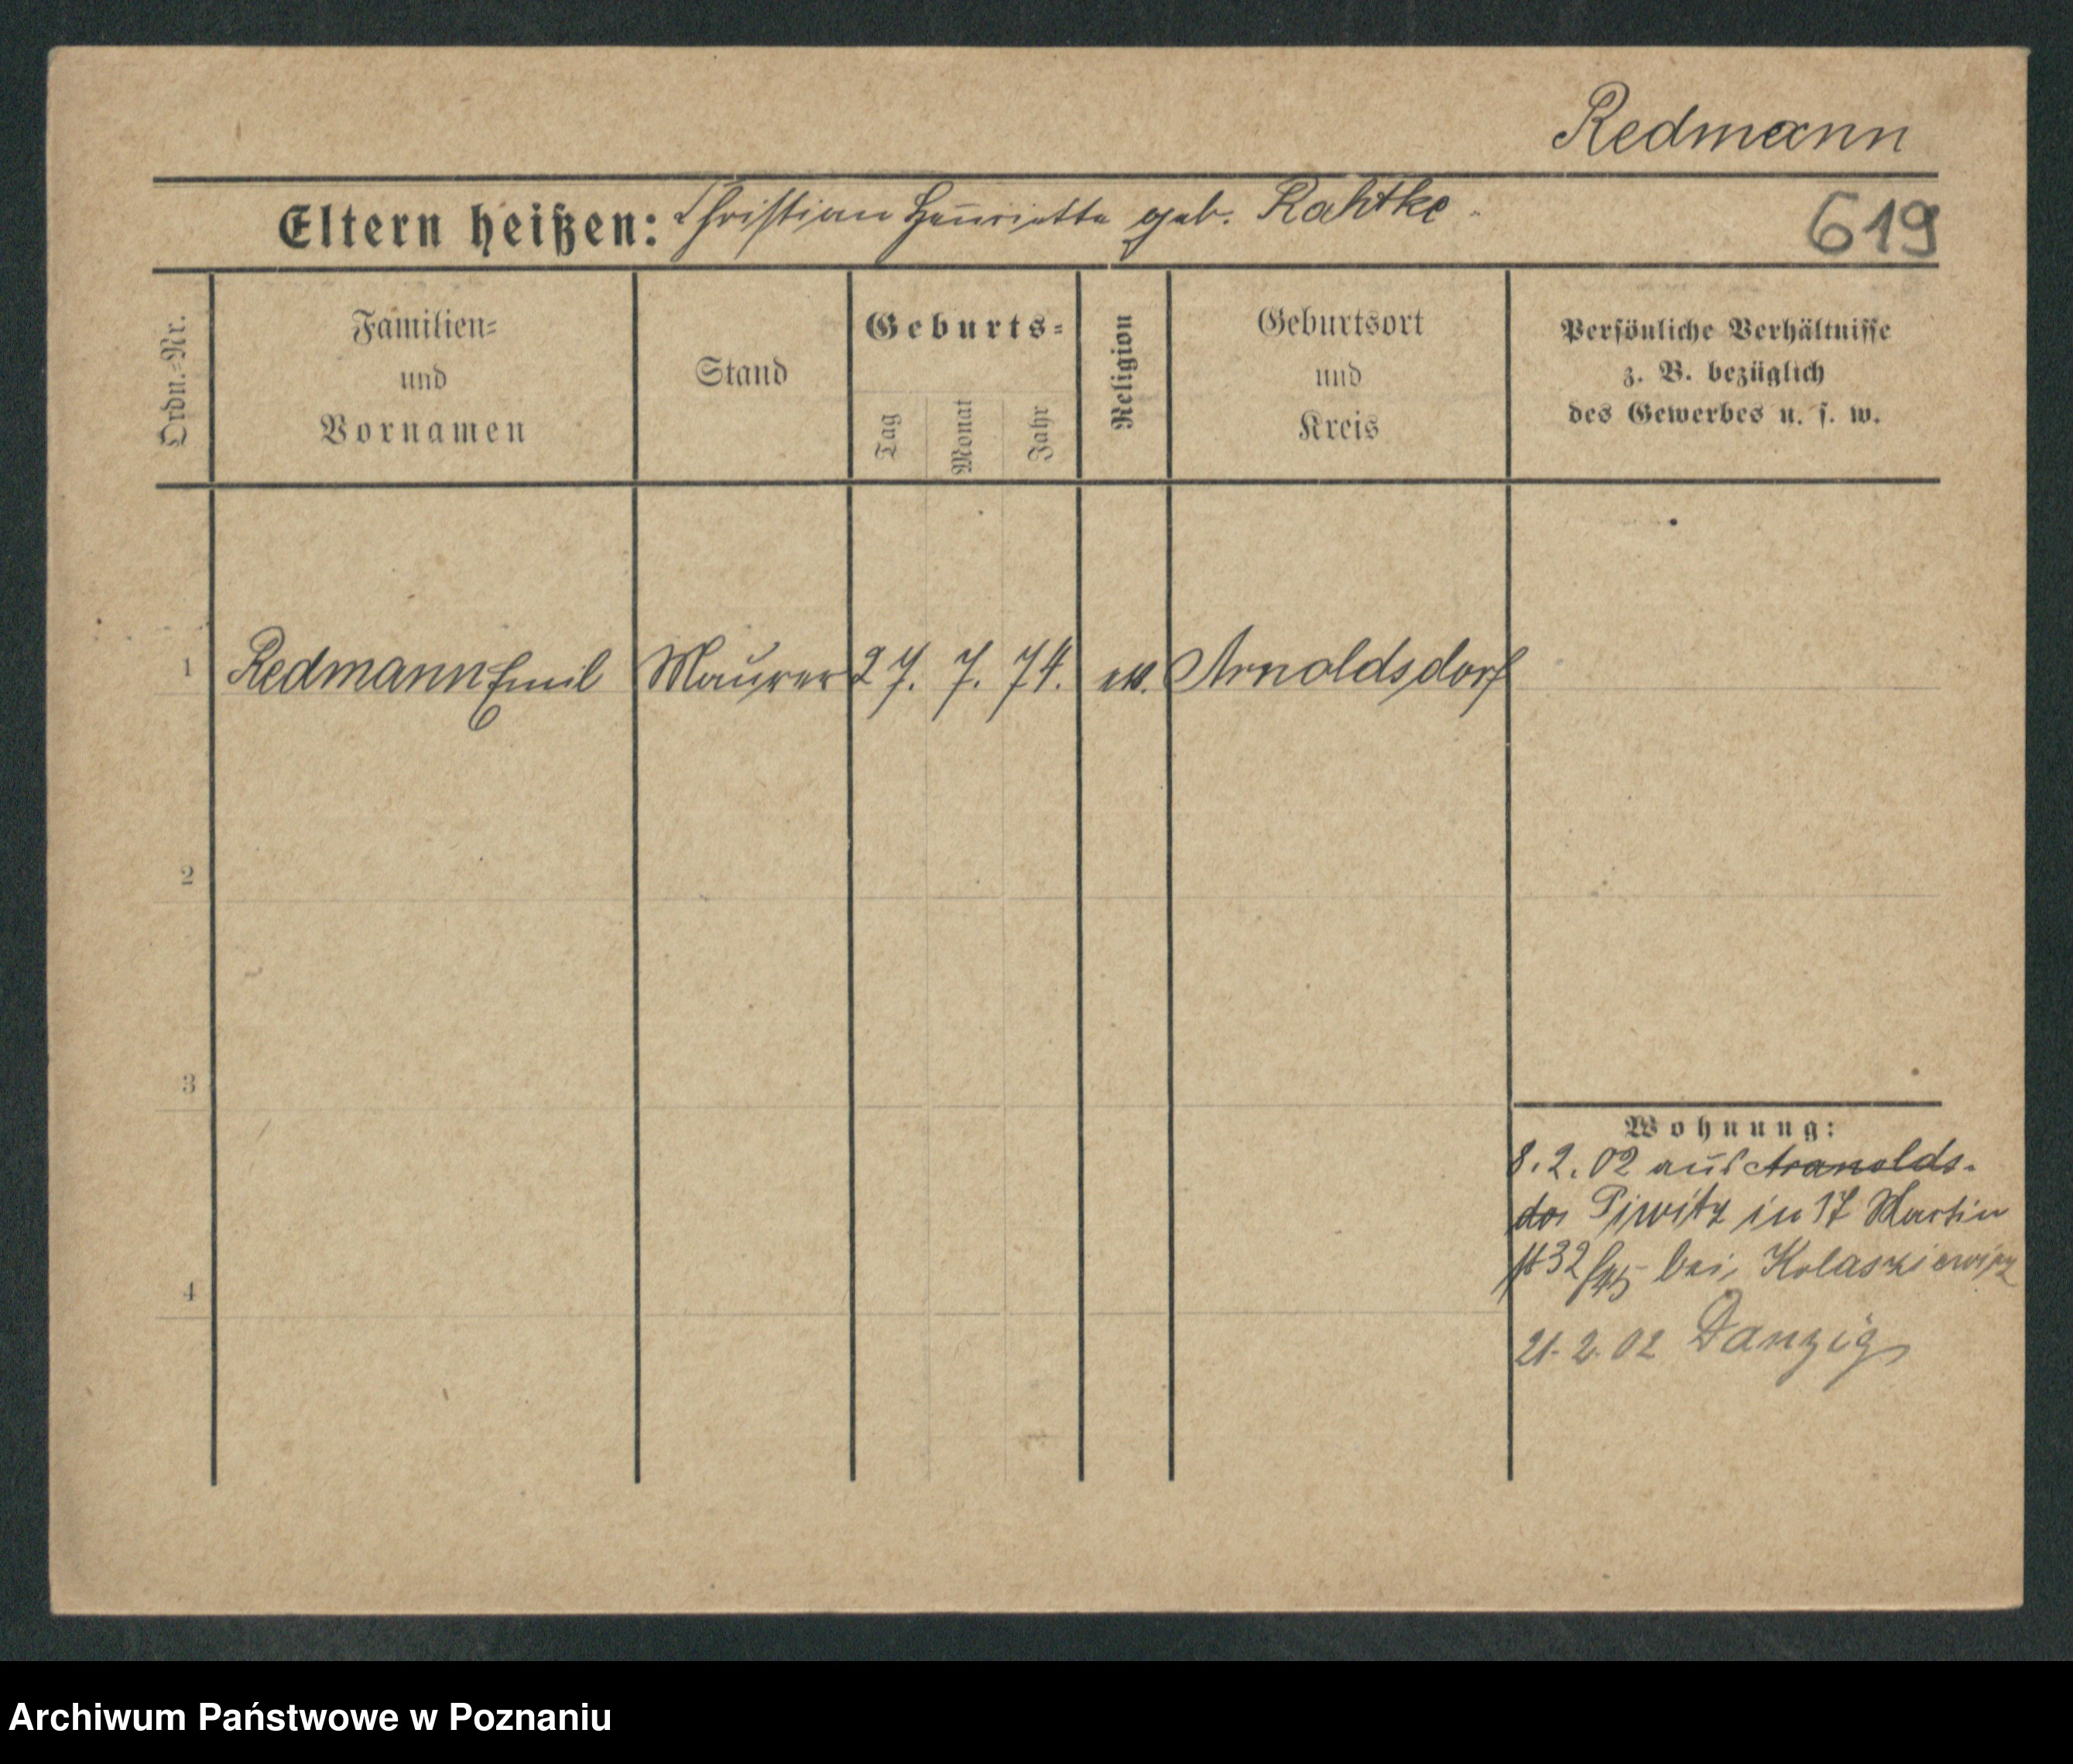 Redmann
Eltern heißen: Christian Henriette geb. Rahtke.
619
Ordn.=Nr.
Familien=
und
Vornamen
Stand
Geburts=
Tag
Monat
Jahr
Religion
Geburtsort
und
Kreis
Persönliche Verhältnisse
z. B. bezüglich
des Gewerbes u. s. w.
1 Redmann Emil Maurer 27. 7. 74. ev. Arnoldsdorf
2
3
4
Wohnung:
8. 2. 02 aus
in 17 Martin
32 bei Kolaszkiewicz
21. 2. 02 Danzig
Archiwum Państwowe w Poznaniu